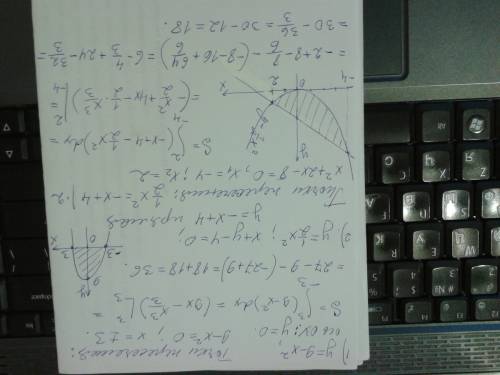 1) y = 9-x²  Точки пересечения:
ось OX: y=0;  9-x²=0; x=±3.
S = ∫₋₃³ (9-x²)dx = (9x - x³/3)|₋₃³ =
= 27-9-(-27+9) = 18+18 = 36.
y
9
-3 0 3 x
2) y = 1/2 x²; x+y-4=0;
y = -x+4 прямая
Точки пересечения: 1/2 x² = -x+4 |·2
x²+2x-8=0, x₁=-4; x₂=2
S = ∫₋₄² (-x+4-1/2 x²)dx =
= (-x²/2+4x-1/2·x³/3)|₋₄² =
= -2+8-8/6-(-8-16+64/6) = 6-4/3+24-32/3 =
= 30-36/3 = 30-12 = 18.
y
-4 0 2 x